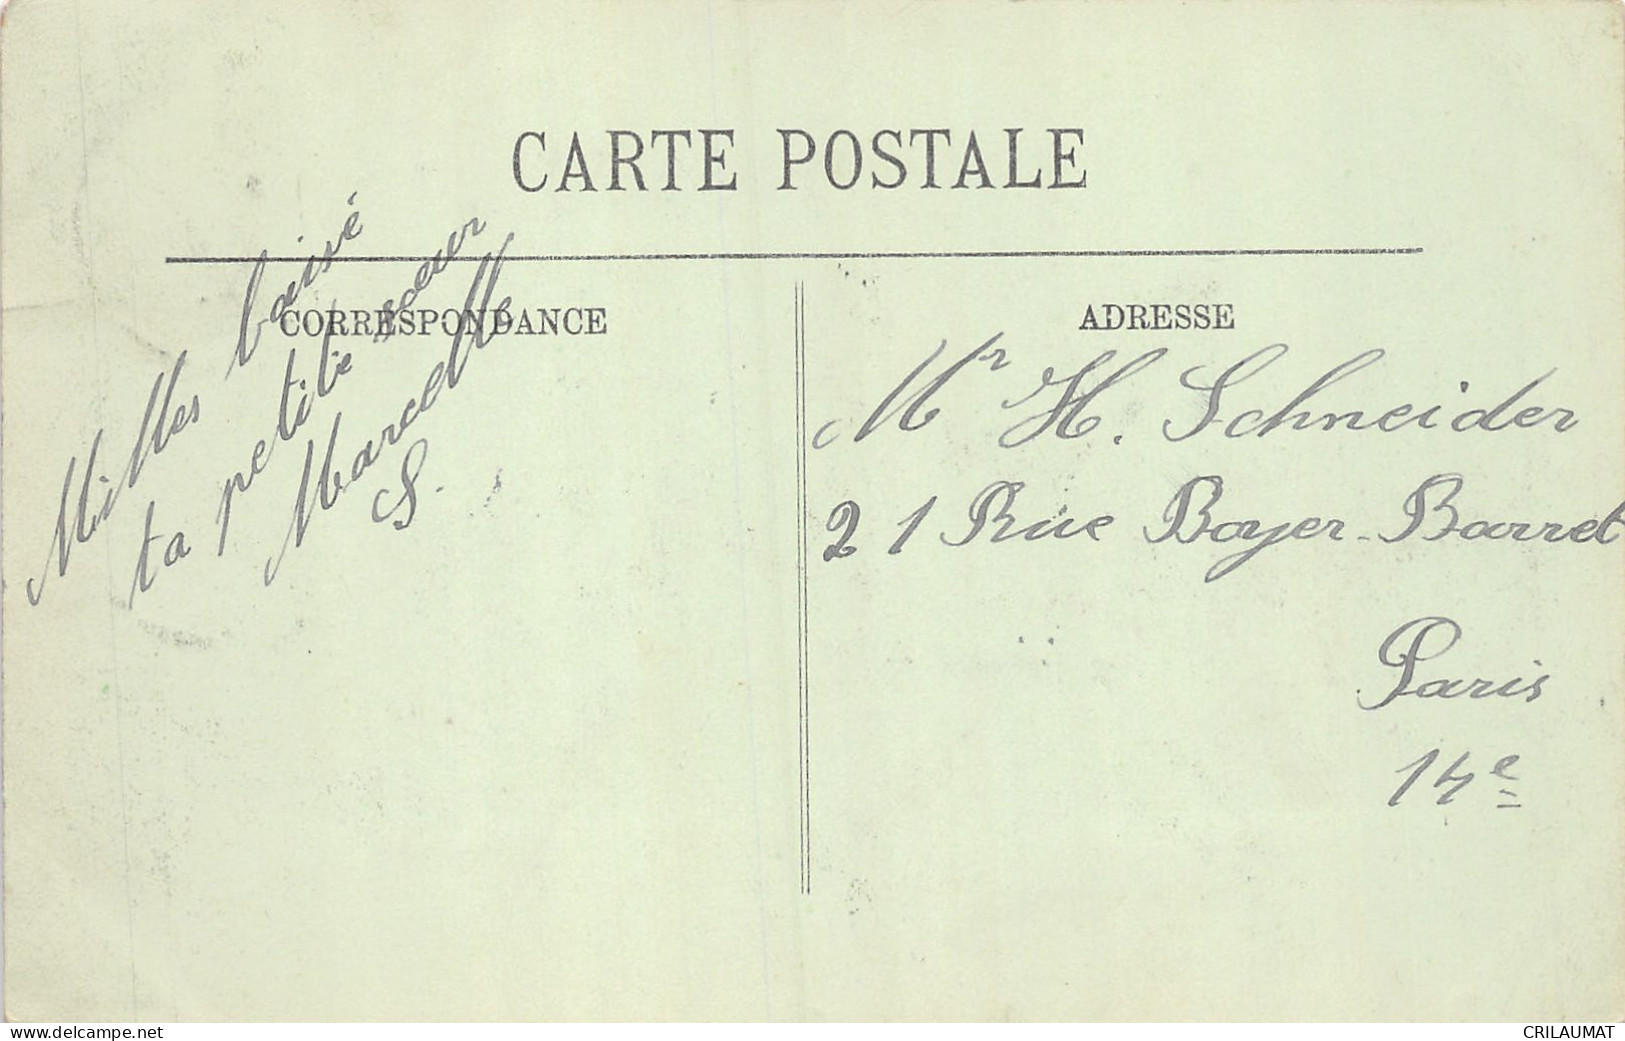 CARTE POSTALE
CORRESPONDANCE
Milles baisé
ta petite soeur
Marcelle
S.
ADRESSE
Mr H. Schneider
21 Rue Boyer-Barret
Paris
14e
www.delcampe.net
CRILAUMAT